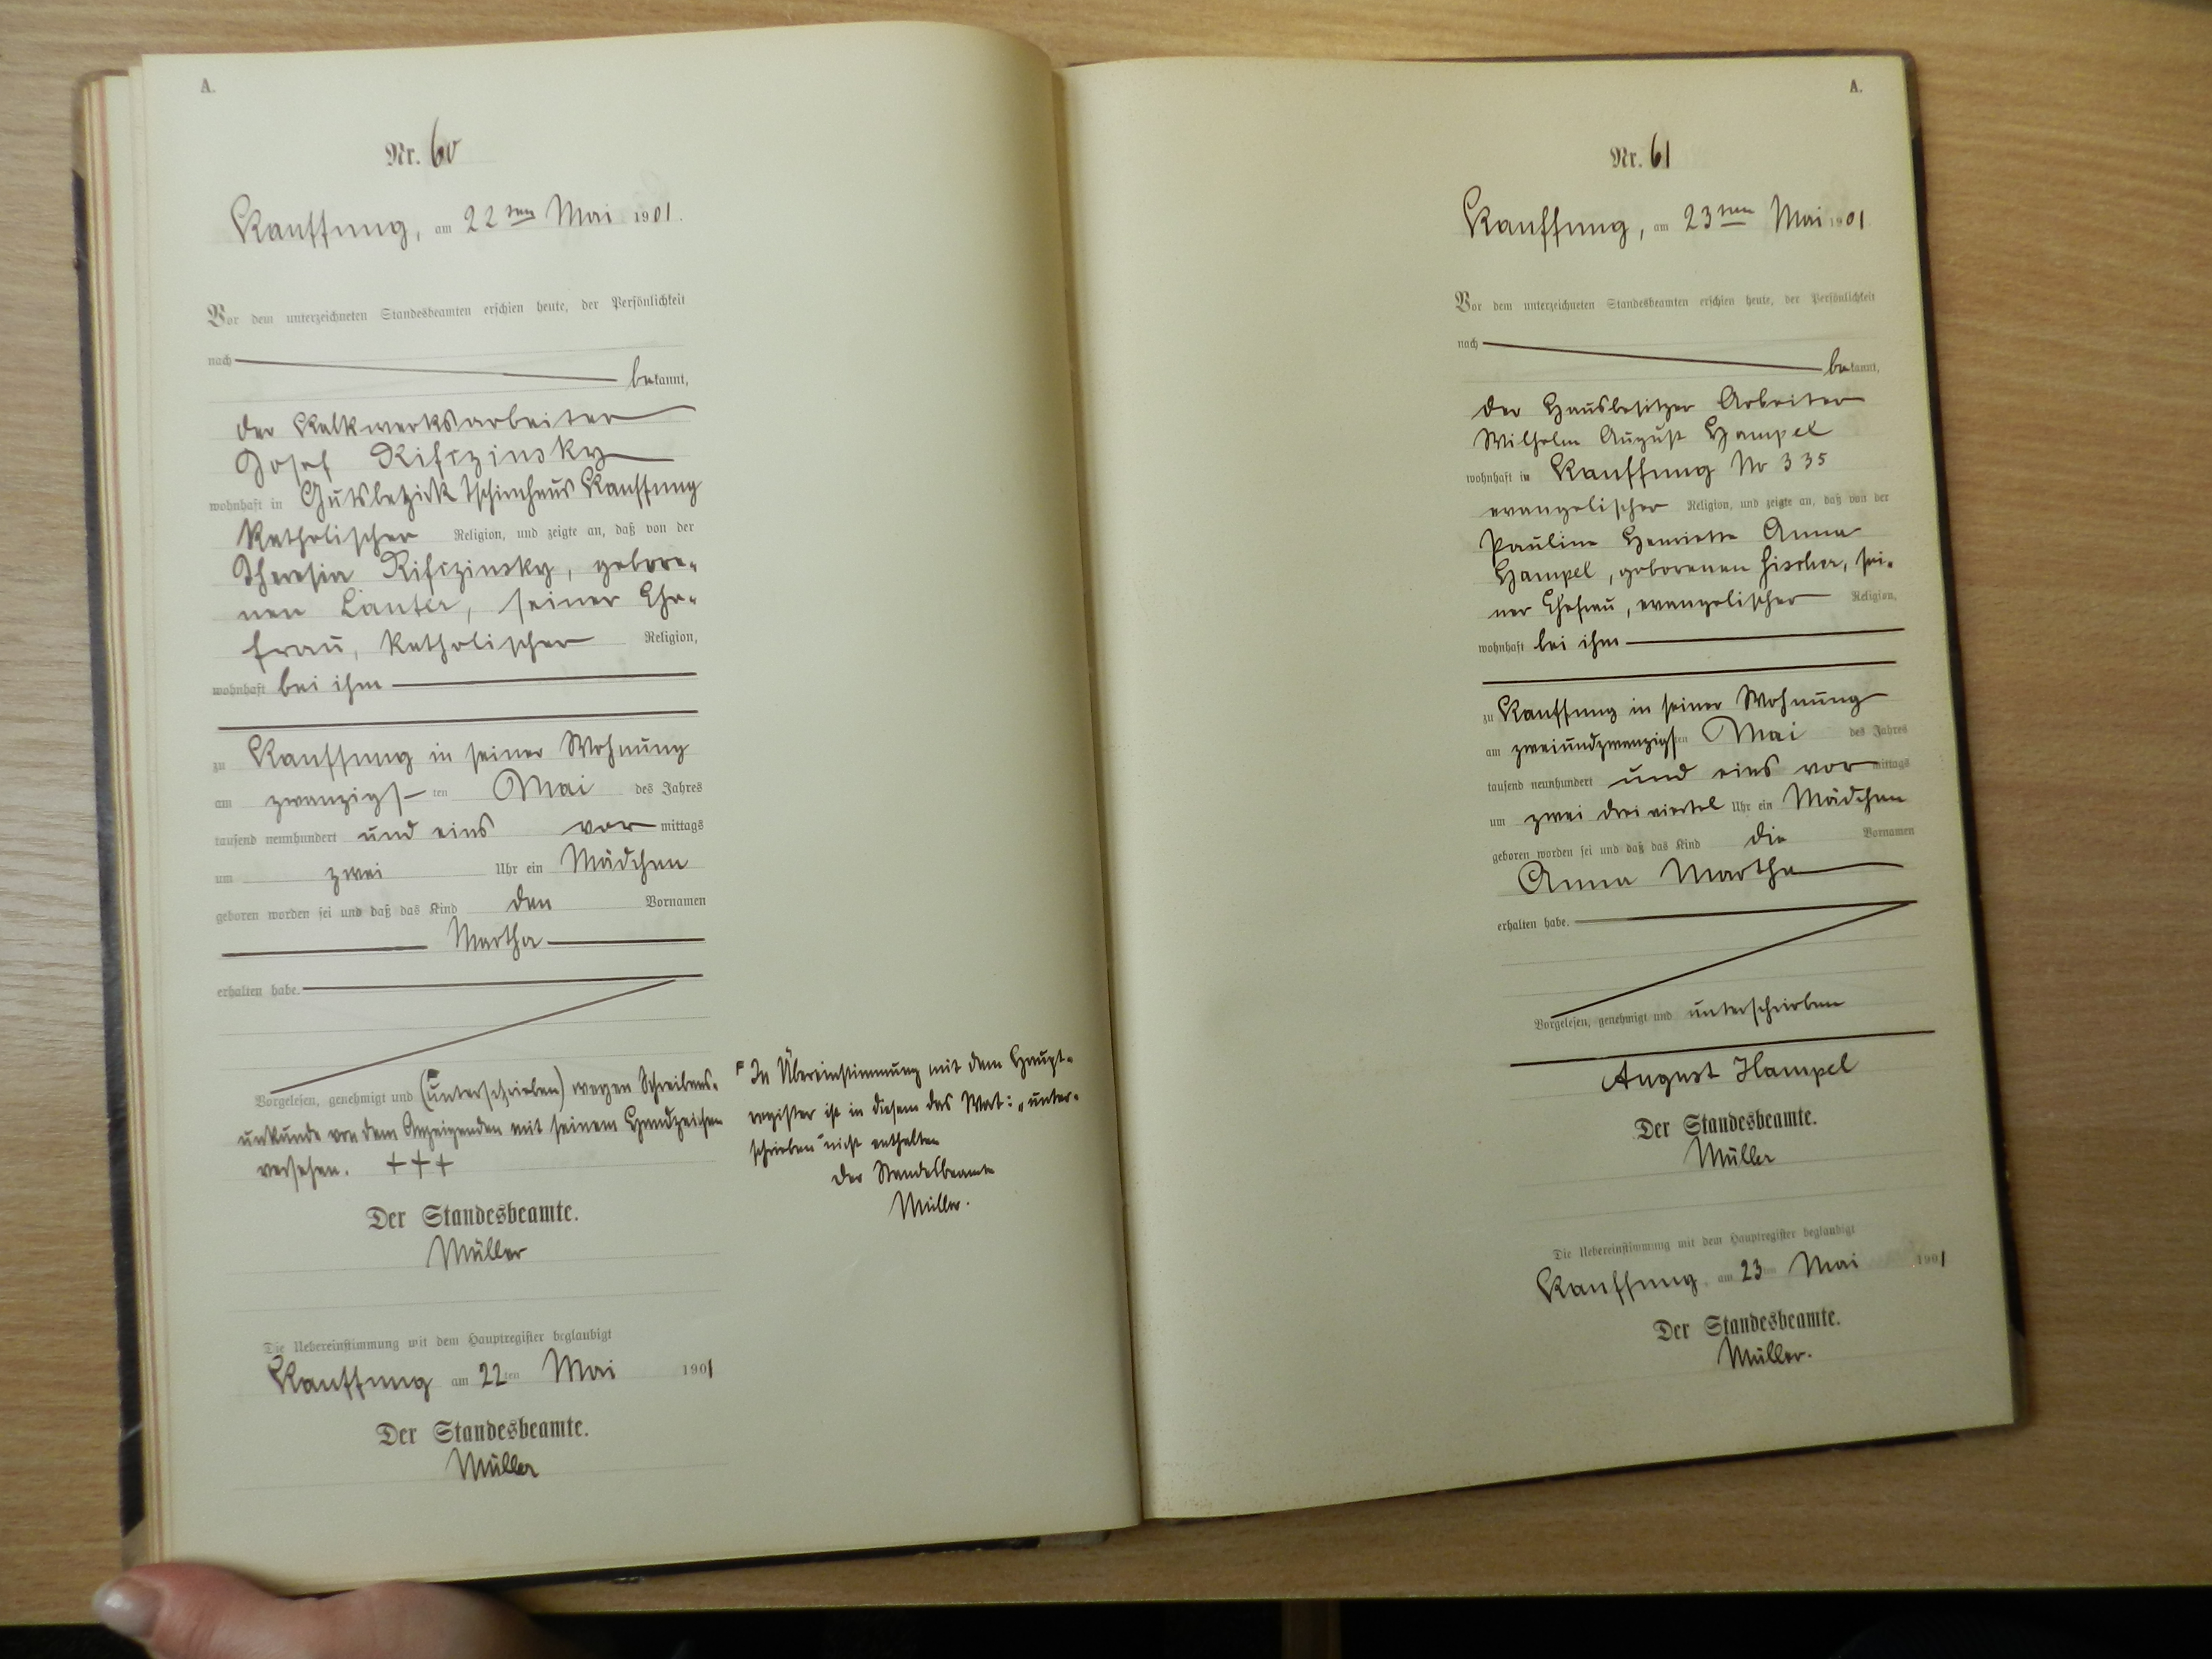 A.
Nr. 60
Kauffung, am 22ten Mai 1901.
Vor dem unterzeichneten Standesbeamten erschien heute, der Persönlichkeit
nach bekannt,
der Kalkwerksarbeiter
Josef Rifczinsky
wohnhaft in Gutsbezirk Tschirnhaus Kauffung
katholischer Religion, und zeigte an, daß von der
Theresia Rifczinsky, gebore-
nen Lauter, seiner Ehe-
frau, katholischer Religion,
wohnhaft bei ihm
zu Kauffung in seiner Wohnung
am zwanzigsten Mai des Jahres
tausend neunhundert und eins vormittags
um zwei Uhr ein Mädchen
geboren worden sei und daß das Kind den Vornamen
Martha
erhalten habe.
Vorgelesen, genehmigt und (unterschrieben) wegen Schreibens-
unkunde von dem Anzeigenden mit seinem Handzeichen
versehen. +++
Der Standesbeamte.
Müller
Die Uebereinstimmung mit dem Hauptregister beglaubigt
Kauffung am 22ten Mai 1901
Der Standesbeamte.
Müller
In Übereinstimmung mit dem Haupt-
register ist in diesem das Wort: „unter-
schrieben" nicht enthalten
Der Standesbeamte
Müller.
A.
Nr. 61
Kauffung, am 23ten Mai 1901
Vor dem unterzeichneten Standesbeamten erschien heute, der Persönlichkeit
nach bekannt,
der Hausbesitzer Arbeiter
Wilhelm August Hampel
wohnhaft in Kauffung No 335
evangelischer Religion, und zeigte an, daß von der
Pauline Henriette Anna
Hampel, geborenen Fischer, sei-
ner Ehefrau, evangelischer Religion,
wohnhaft bei ihm
zu Kauffung in seiner Wohnung
am zweiundzwanzigsten Mai des Jahres
tausend neunhundert und eins vormittags
um zwei dreiviertel Uhr ein Mädchen
geboren worden sei und daß das Kind die Vornamen
Anna Martha
erhalten habe.
Vorgelesen, genehmigt und unterschrieben
August Hampel
Der Standesbeamte.
Müller
Die Uebereinstimmung mit dem Hauptregister beglaubigt
Kauffung, am 23ten Mai 1901
Der Standesbeamte.
Müller.